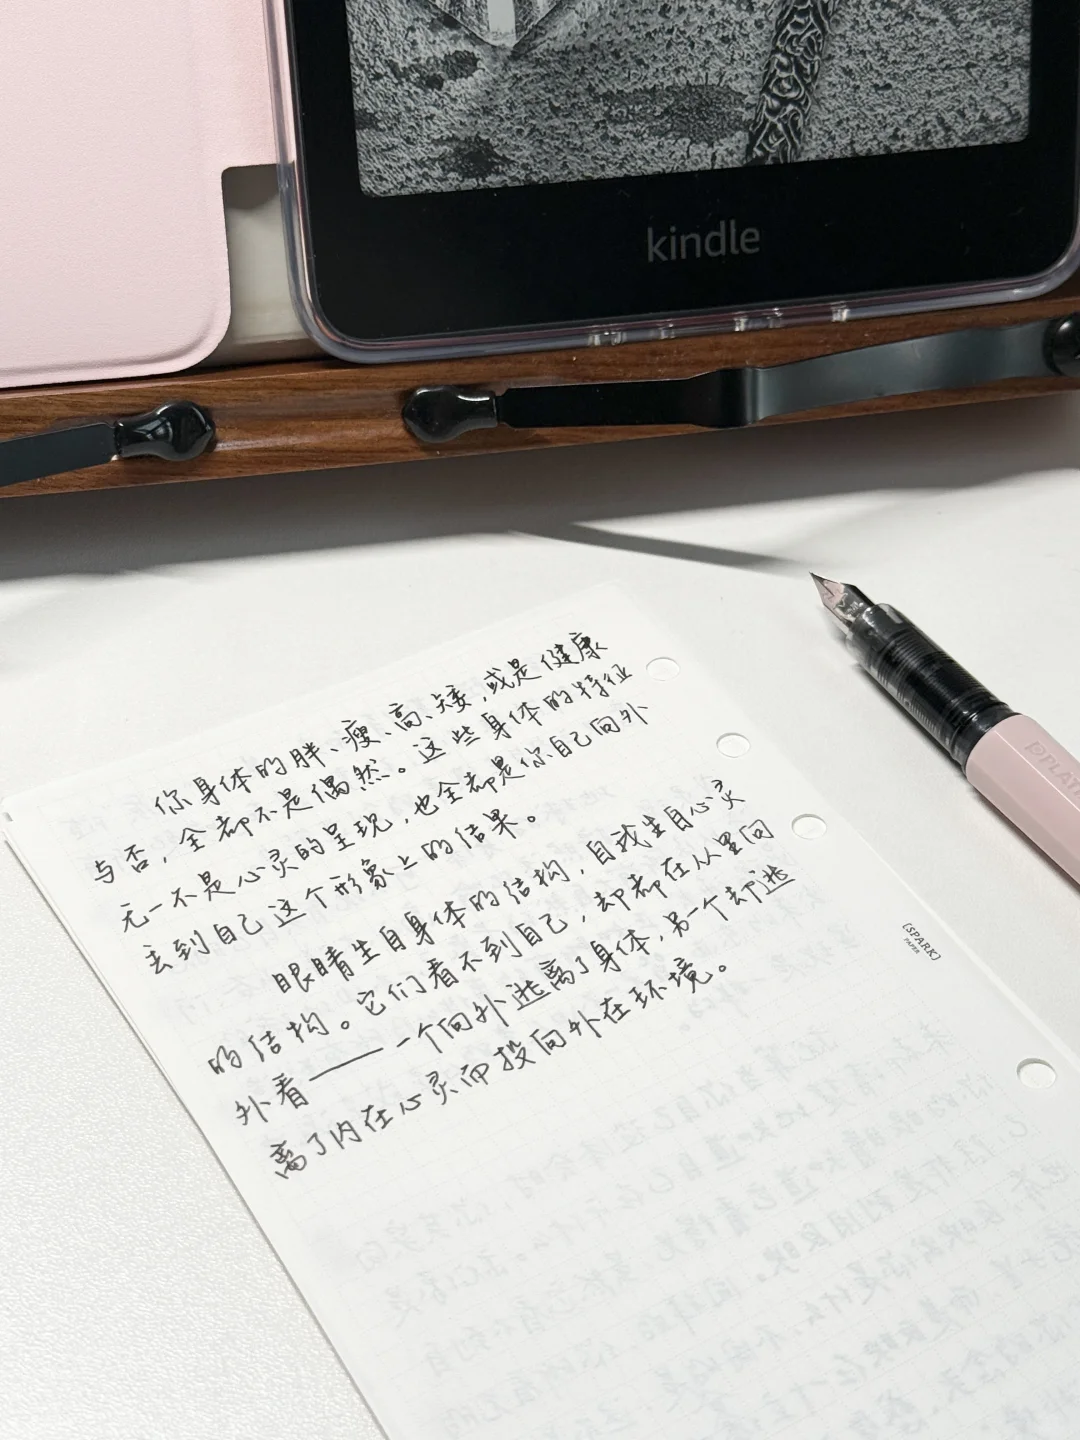 kindle
你身体的胖、瘦、高、矮，或是健康
与否，全都不是偶然。这些身体的特征
无一不是心灵的呈现，也全都是你自己向外
去到自己这个形象上的结果。
眼睛生自身体的结构，自我生自心灵
的结构。它们看不到自己，却都在从里向
外看——一个向外逃离了身体，另一个却逃
离了内在心灵而投向外在环境。
(SPARK)
PAPER
PLAT